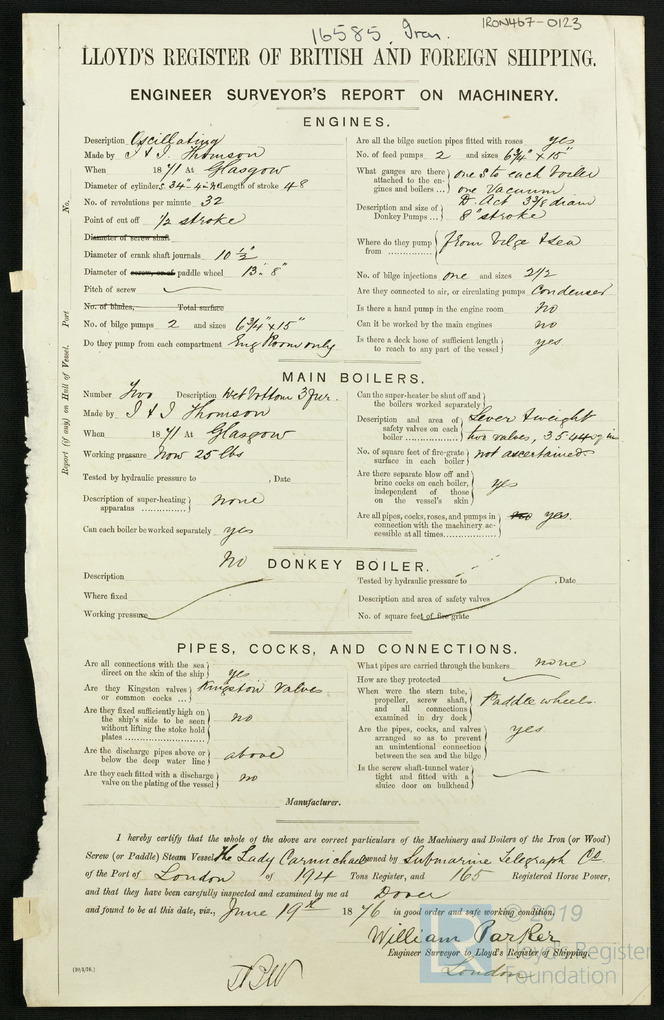 16585 Iron.
IRON467-0123
LLOYD'S REGISTER OF BRITISH AND FOREIGN SHIPPING.
ENGINEER SURVEYOR'S REPORT ON MACHINERY.
ENGINES.
Description Oscillating
Made by J & J. Thomson
When 1871 At Glasgow
Diameter of cylinders 34" Length of stroke 48
No. of revolutions per minute 32
Point of cut off 1/2 stroke
Diameter of screw shaft
Diameter of crank shaft journals 10 1/2"
Diameter of screw, or of paddle wheel 13' 8"
Pitch of screw
No. of blades, Total surface
No. of bilge pumps 2 and sizes 6 3/4" x 15"
Do they pump from each compartment Eng Room only
Are all the bilge suction pipes fitted with roses yes
No. of feed pumps 2 and sizes 6 3/4" x 15"
What gauges are there attached to the engines and boilers ... one S to each boiler
one Vacuum
Description and size of Donkey Pumps ... D. Act 3 3/8 diam
8" stroke
Where do they pump from from bilge & sea
No. of bilge injections one and sizes 2 1/2
Are they connected to air, or circulating pumps Condenser
Is there a hand pump in the engine room No
Can it be worked by the main engines no
Is there a deck hose of sufficient length to reach to any part of the vessel yes
Report (if any) on Hull of Vessel. Port No.
MAIN BOILERS.
Number Two Description Wet bottom 3 fur.
Made by J & J Thomson
When 1871 At Glasgow
Working pressure now 25 lbs
Tested by hydraulic pressure to , Date
Description of super-heating apparatus none
Can each boiler be worked separately yes
Can the super-heater be shut off and the boilers worked separately
Description and area of safety valves on each boiler Lever & weight
two valves, 35.44
No. of square feet of fire-grate surface in each boiler not ascertained
Are there separate blow off and brine cocks on each boiler, independent of those on the vessel's skin yes
Are all pipes, cocks, roses, and pumps in connection with the machinery accessible at all times no yes.
No DONKEY BOILER.
Description
Where fixed
Working pressure
Tested by hydraulic pressure to , Date
Description and area of safety valves
No. of square feet of fire grate
PIPES, COCKS, AND CONNECTIONS.
Are all connections with the sea direct on the skin of the ship yes
Are they Kingston valves or common cocks ... Kingston Valves
Are they fixed sufficiently high on the ship's side to be seen without lifting the stoke hold plates no
Are the discharge pipes above or below the deep water line above
Are they each fitted with a discharge valve on the plating of the vessel no
What pipes are carried through the bunkers none
How are they protected
When were the stern tube, propeller, screw shaft, and all connections examined in dry dock Paddle wheels.
Are the pipes, cocks, and valves arranged so as to prevent an unintentional connection between the sea and the bilge yes
Is the screw shaft-tunnel water tight and fitted with a sluice door on bulkhead
Manufacturer.
I hereby certify that the whole of the above are correct particulars of the Machinery and Boilers of the Iron (or Wood)
Screw (or Paddle) Steam Vessel The Lady Carmichael owned by Submarine Telegraph Co.
of the Port of London of 194 Tons Register, and 165 Registered Horse Power,
and that they have been carefully inspected and examined by me at Dover
and found to be at this date, viz., June 19th 1876 in good order and safe working condition.
William Parker
Engineer Surveyor to Lloyd's Register of Shipping.
London
© 2019
LR
Lloyd's Register
Foundation